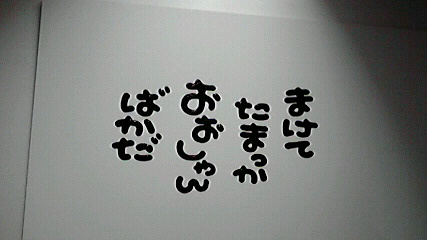 まけて
たまっか
おおしゃん
ばかだ